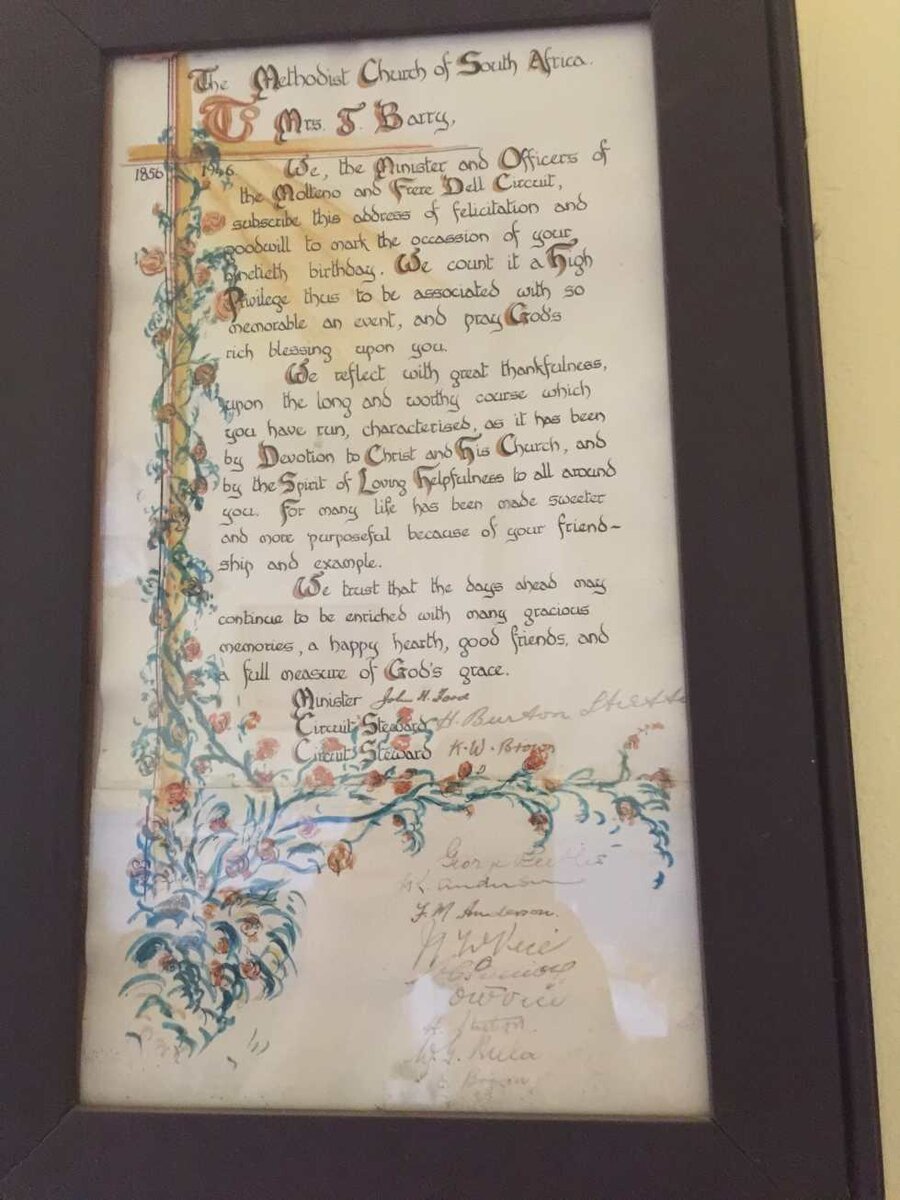 The Methodist Church of South Africa.
To Mrs. F. Barry,
1856 1946
We, the Minister and Officers of
the Molteno and Frere Dell Circuit,
subscribe this address of felicitation and
goodwill to mark the occassion of your
ninetieth birthday. We count it a High
Privilege thus to be associated with so
memorable an event, and pray God's
rich blessing upon you.
We reflect with great thankfulness,
upon the long and worthy course which
you have run, characterised, as it has been
by Devotion to Christ and His Church, and
by the Spirit of Loving Helpfulness to all around
you. For many life has been made sweeter
and more purposeful because of your friend-
ship and example.
We trust that the days ahead may
continue to be enriched with many gracious
memories, a happy hearth, good friends, and
a full measure of God's grace.
Minister John H.
Circuit Steward H. Burton
Circuit Steward K. W. Brown
George
Anderson
F. M. Anderson.